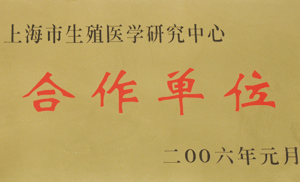 上海市生殖医学研究中心
合作单位
二00六年元月